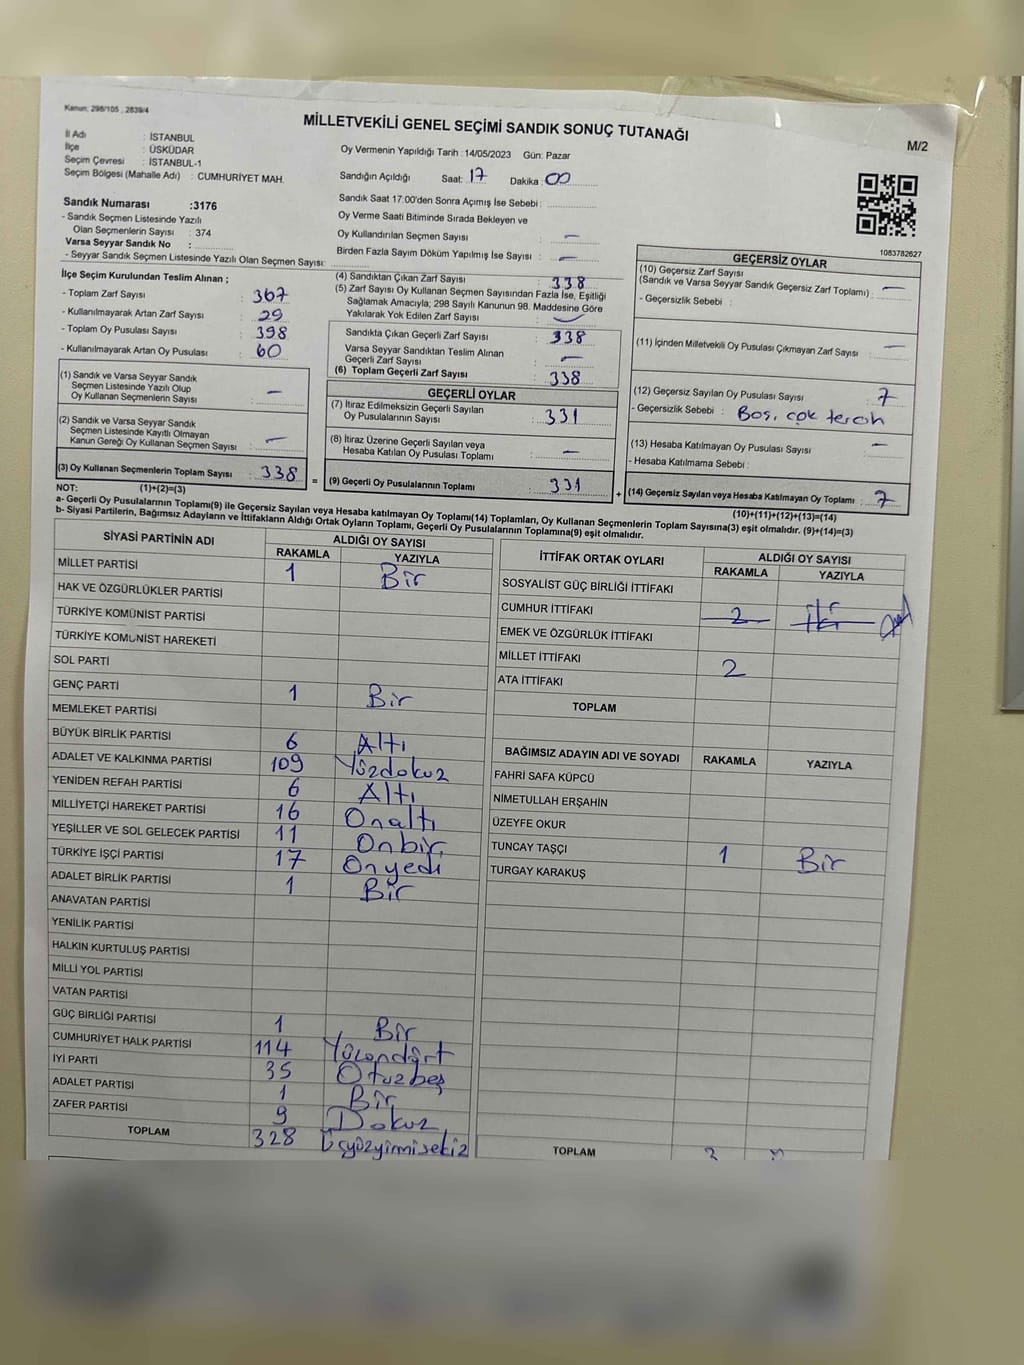 Kanun: 298/105 , 2839/4
MİLLETVEKİLİ GENEL SEÇİMİ SANDIK SONUÇ TUTANAĞI
M/2
İl Adı : İSTANBUL
İlçe : ÜSKÜDAR
Seçim Çevresi : İSTANBUL-1
Seçim Bölgesi (Mahalle Adı) : CUMHURİYET MAH.
Oy Vermenin Yapıldığı Tarih : 14/05/2023 Gün: Pazar
Sandığın Açıldığı Saat: 17 Dakika : 00
Sandık Saat 17:00'den Sonra Açımış İse Sebebi :
Oy Verme Saati Bitiminde Sırada Bekleyen ve
Oy Kullandırılan Seçmen Sayısı : —
Birden Fazla Sayım Döküm Yapılmış İse Sayısı : —
Sandık Numarası :3176
- Sandık Seçmen Listesinde Yazılı
Olan Seçmenlerin Sayısı : 374
Varsa Seyyar Sandık No :
- Seyyar Sandık Seçmen Listesinde Yazılı Olan Seçmen Sayısı:
1083782627
İlçe Seçim Kurulundan Teslim Alınan ;
- Toplam Zarf Sayısı : 367
- Kullanılmayarak Artan Zarf Sayısı : 29
- Toplam Oy Pusulası Sayısı : 398
- Kullanılmayarak Artan Oy Pusulası : 60
(1) Sandık ve Varsa Seyyar Sandık
Seçmen Listesinde Yazılı Olup
Oy Kullanan Seçmenlerin Sayısı : —
(2) Sandık ve Varsa Seyyar Sandık
Seçmen Listesinde Kayıtlı Olmayan
Kanun Gereği Oy Kullanan Seçmen Sayısı : —
(3) Oy Kullanan Seçmenlerin Toplam Sayısı : 338
(4) Sandıktan Çıkan Zarf Sayısı : 338
(5) Zarf Sayısı Oy Kullanan Seçmen Sayısından Fazla İse, Eşitliği
Sağlamak Amacıyla; 298 Sayılı Kanunun 98. Maddesine Göre
Yakılarak Yok Edilen Zarf Sayısı : —
Sandıkta Çıkan Geçerli Zarf Sayısı : 338
Varsa Seyyar Sandıktan Teslim Alınan
Geçerli Zarf Sayısı : —
(6) Toplam Geçerli Zarf Sayısı : 338
GEÇERLİ OYLAR
(7) İtiraz Edilmeksizin Geçerli Sayılan
Oy Pusulalarının Sayısı : 331
(8) İtiraz Üzerine Geçerli Sayılan veya
Hesaba Katılan Oy Pusulası Toplamı : —
= (9) Geçerli Oy Pusulalarının Toplamı : 331
GEÇERSİZ OYLAR
(10) Geçersiz Zarf Sayısı
(Sandık ve Varsa Seyyar Sandık Geçersiz Zarf Toplamı) : —
- Geçersizlik Sebebi :
(11) İçinden Milletvekili Oy Pusulası Çıkmayan Zarf Sayısı : —
(12) Geçersiz Sayılan Oy Pusulası Sayısı : 7
- Geçersizlik Sebebi : Boş, çok tercih
(13) Hesaba Katılmayan Oy Pusulası Sayısı : —
- Hesaba Katılmama Sebebi :
+ (14) Geçersiz Sayılan veya Hesaba Katılmayan Oy Toplamı : 7
NOT: (1)+(2)=(3)
(10)+(11)+(12)+(13)=(14)
a- Geçerli Oy Pusulalarının Toplamı(9) ile Geçersiz Sayılan veya Hesaba katılmayan Oy Toplamı(14) Toplamları, Oy Kullanan Seçmenlerin Toplam Sayısına(3) eşit olmalıdır. (9)+(14)=(3)
b- Siyasi Partilerin, Bağımsız Adayların ve İttifakların Aldığı Ortak Oyların Toplamı, Geçerli Oy Pusulalarının Toplamına(9) eşit olmalıdır.
SİYASİ PARTİNİN ADI ALDIĞI OY SAYISI
RAKAMLA YAZIYLA
MİLLET PARTİSİ 1 Bir
HAK VE ÖZGÜRLÜKLER PARTİSİ
TÜRKİYE KOMÜNİST PARTİSİ
TÜRKİYE KOMÜNİST HAREKETİ
SOL PARTİ
GENÇ PARTİ 1 Bir
MEMLEKET PARTİSİ
BÜYÜK BİRLİK PARTİSİ 6 Altı
ADALET VE KALKINMA PARTİSİ 109 Yüzdokuz
YENİDEN REFAH PARTİSİ 6 Altı
MİLLİYETÇİ HAREKET PARTİSİ 16 Onaltı
YEŞİLLER VE SOL GELECEK PARTİSİ 11 Onbir
TÜRKİYE İŞÇİ PARTİSİ 17 Onyedi
ADALET BİRLİK PARTİSİ 1 Bir
ANAVATAN PARTİSİ
YENİLİK PARTİSİ
HALKIN KURTULUŞ PARTİSİ
MİLLİ YOL PARTİSİ
VATAN PARTİSİ
GÜÇ BİRLİĞİ PARTİSİ 1 Bir
CUMHURİYET HALK PARTİSİ 114 Yüzondört
İYİ PARTİ 35 Otuzbeş
ADALET PARTİSİ 1 Bir
ZAFER PARTİSİ 9 Dokuz
TOPLAM 328 Üçyüzyirmisekiz
İTTİFAK ORTAK OYLARI ALDIĞI OY SAYISI
RAKAMLA YAZIYLA
SOSYALİST GÜÇ BİRLİĞİ İTTİFAKI
CUMHUR İTTİFAKI 2 İki
EMEK VE ÖZGÜRLÜK İTTİFAKI
MİLLET İTTİFAKI 2
ATA İTTİFAKI
TOPLAM
BAĞIMSIZ ADAYIN ADI VE SOYADI RAKAMLA YAZIYLA
FAHRİ SAFA KÜPCÜ
NİMETULLAH ERŞAHİN
ÜZEYFE OKUR
TUNCAY TAŞÇI 1 Bir
TURGAY KARAKUŞ
TOPLAM